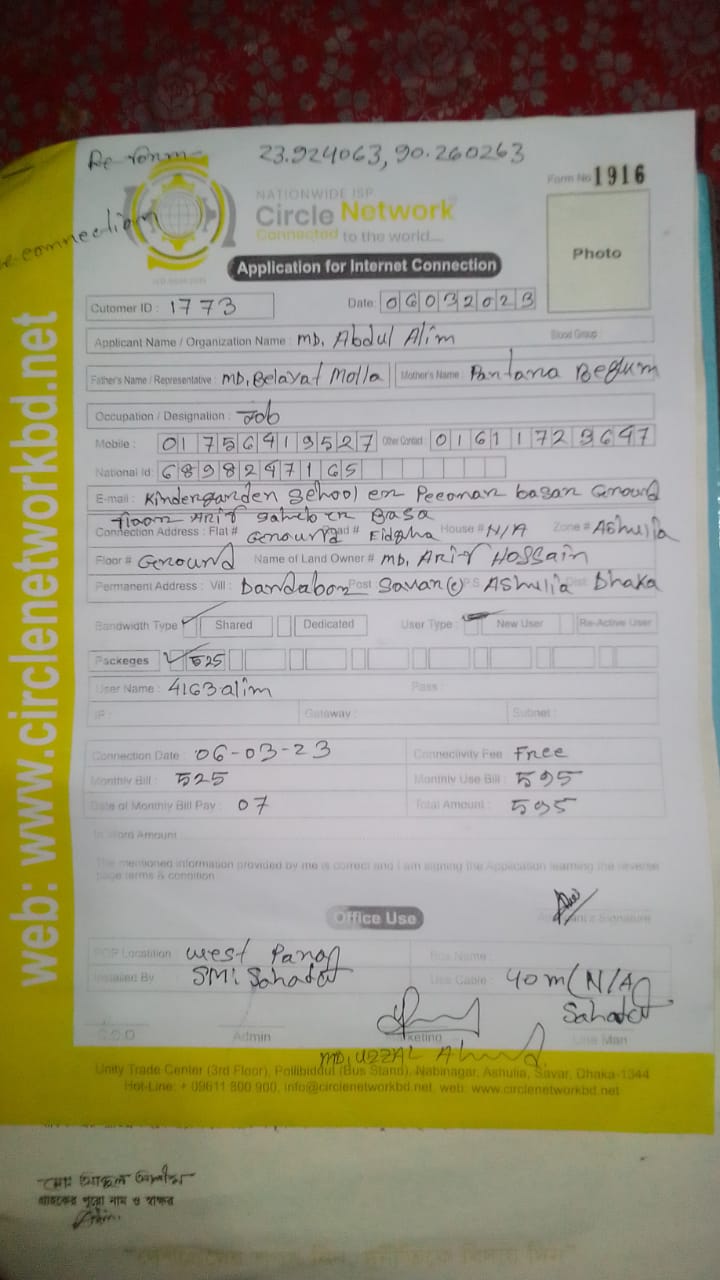 23.924063, 90.260263
Form No 1916
connection
NATIONWIDE ISP
Circle Network
Connected to the world....
Photo
Application for Internet Connection
Cutomer ID : 1773 Date: 06032023
Applicant Name / Organization Name : MD, Abdul Alim Blood Group :
Father's Name / Representative : MD, Belayat Molla Mother's Name : Begum
Occupation / Designation : Job
Mobile : 01756419527 Other Contact : 01611723647
National Id: 6898247165
E-mail : Kindergarden School er basar Ground
ARIF saheb er Basa
Connection Address : Flat # Ground Road # Eidgha House # N/A Zone # Ashulia
Floor # Ground Name of Land Owner # MD, ARIF HOSSAIN
Permanent Address : Vill : Post : Savar (c) P.S Ashulia Dist Dhaka
Bandwidth Type Shared Dedicated User Type : New User Re-Active User
Packeges 525
User Name : 4163alim Pass :
IP : Gateway : Subnet :
Connection Date : 06-03-23 Connectivity Fee Free
Monthly Bill : 525 Monthly Use Bill : 595
Date of Monthly Bill Pay : 07 Total Amount : 595
In Word Amount :
The mentioned information provided by me is correct and I am signing the Application learning the reverse
page terms & condition
Office Use
Applicant's Signature
POP Locatition West Box Name :
Installed By SMI Sahadat Use Cable : 40m (N/A)
Sahadat
C.O.O Admin Marketing Line Man
MD, UZZAL Ahmed
Unity Trade Center (3rd Floor), Pollibiddut (Bus Stand), Nabinagar, Ashulia, Savar, Dhaka-1344
Hot-Line: + 09611 800 900, info@circlenetworkbd.net, web: www.circlenetworkbd.net
web: www.circlenetworkbd.net
গ্রাহকের পুরো নাম ও স্বাক্ষর